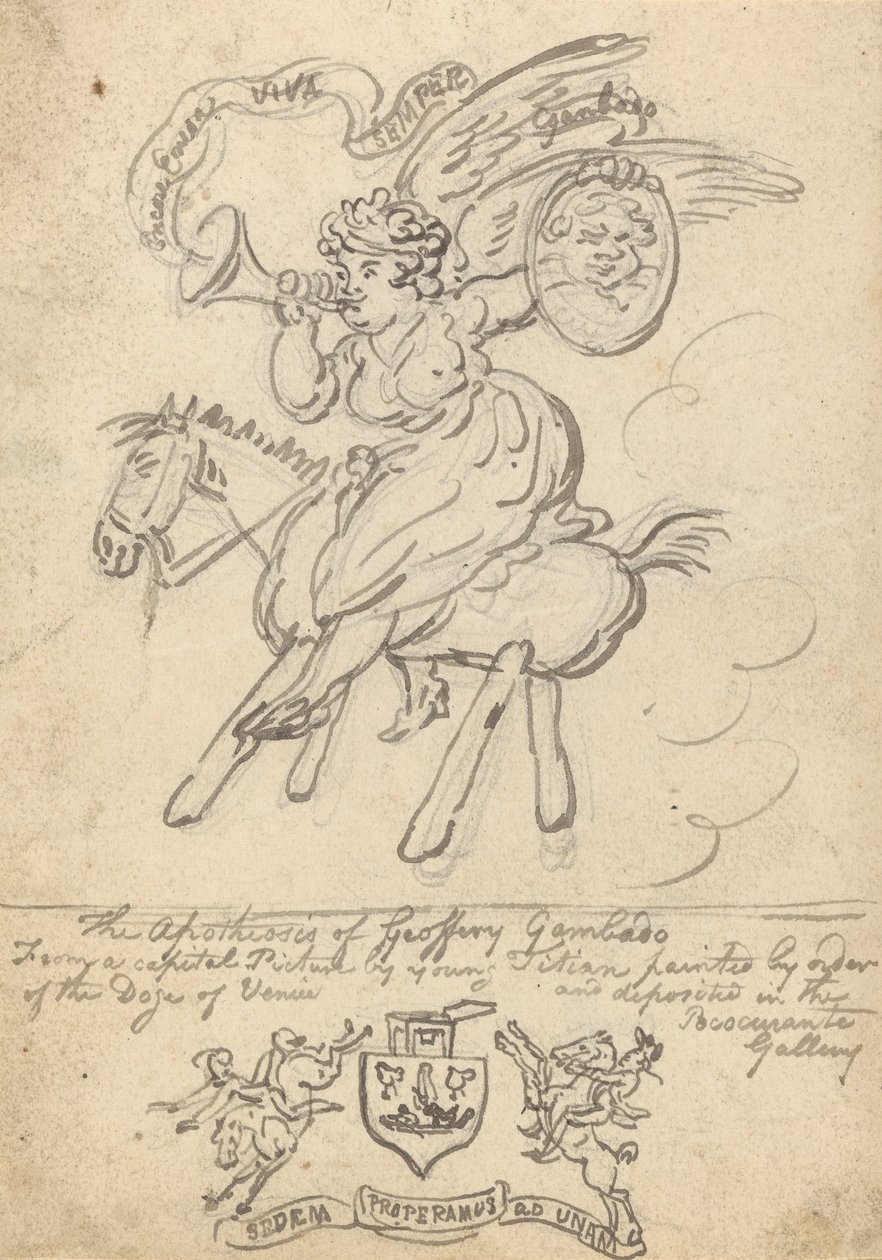 Encore Encore VIVA SEMPER
Gambado
The Apotheosis of Geoffery Gambado
From a capital Picture by young Titian painted by order
of the Doge of Venice and deposited in the
Pococurante
Gallery
SEDEM PROPERAMUS AD UNAM